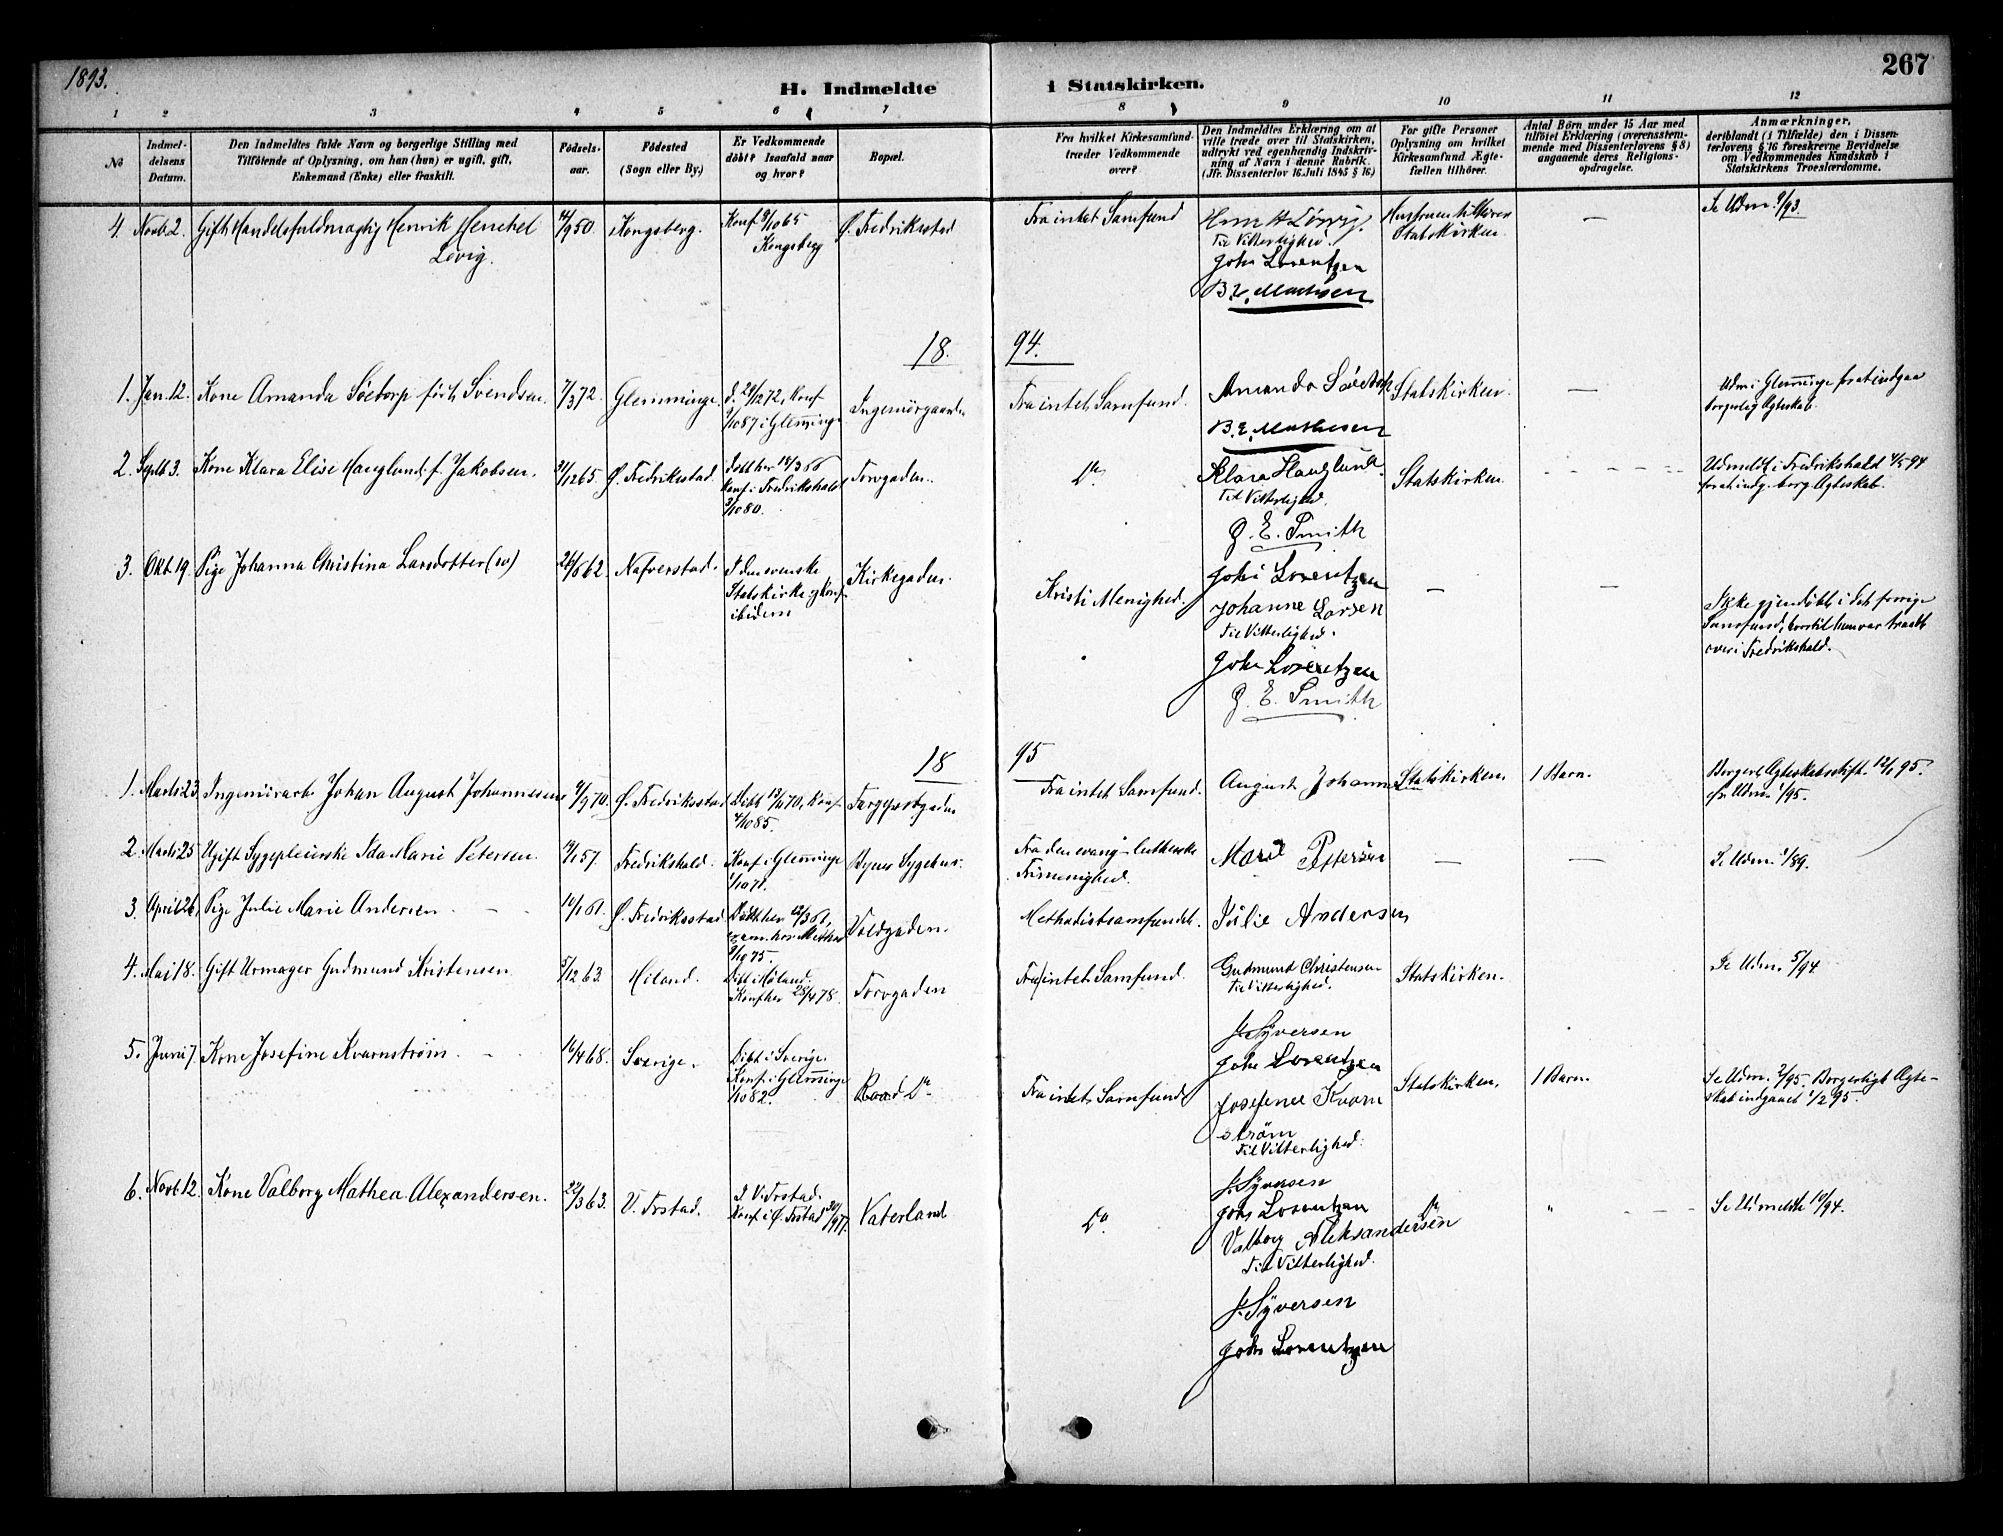 1893.
267
H. Indmeldte i Statskirken.
1 2 3 4 5 6 7 8 9 10 11 12
No
Indmel-
delsens
Datum.
Den Indmeldtes fulde Navn og borgerlige Stilling med
Tilföiende af Oplysning, om han (hun) er ugift, gift,
Enkemand (Enke) eller fraskilt.
Födsels-
aar.
Födested
(Sogn eller By.)
Er Vedkommende
döbt? Isaafald naar
og hvor?
Bopæl.
Fra hvilket Kirkesamfund
træder Vedkommende
over?
Den Indmeldtes Erklæring om at
ville træde over til Statskirken,
udtrykt ved egenhændig Indskriv-
ning af Navn i denne Rubrik.
(Jfr. Dissenterlov 16. Juli 1845 § 16)
For gifte Personer
Oplysning om hvilket
Kirkesamfund Ægte-
fællen tilhörer.
Antal Börn under 15 Aar med
tilföiet Erklæring (overensstem-
mende med Dissenterlovens § 8)
angaaende deres Religions-
opdragelse.
Anmærkninger,
deriblandt (i Tilfælde) den i Dissen-
terlovens § 16 foreskrevne Bevidnelse
om Vedkommendes Kundskab i
Statskirkens Troeslærdomme.
4. Novb. 2. Gift Handelsfuldmægtig Henrik Henchel
Løvig.
14/9 50. Kongsberg.
Konf 8/10 65
Kongsberg
Ø. Fredriksstad
Fra intet Samfund
Til Vitterlighed.
Joh. Lorentzen
B. E. Mathisen
Hustruen tilhører
Statskirken.
—
Se Udm. 9/93.
18 94.
1. Jan. 12. Kone Amanda Söetorp födt Svendsen.
7/3 72. Glemminge.
d. 29/12 72, Konf
9/10 87 i Glemminge
Ingeniörgaarden
Fra intet Samfund.
Amanda Söetorp
B. E. Mathisen
Statskirken.
—
Udm i Glemminge for at indgaa
borgerlig Ægteskab.
2. Septb 3. Kone Klara Elise Hauglund f. Jakobsen.
21/12 65. Ø. Fredriksstad.
Döbt her 18/3 66
Konf i Fredrikshald
3/10 80.
Torvgaden.
Do
Klara Hauglund.
Til Vitterlighed.
G. E. Smith
Joh. Lorentzen
Statskirken.
Udmeldt i Fredrikshald 4/5 94
for at indg. borg. Ægteskab.
3. Okt. 19. Pige Johanna Christina Larsdotter (w)
62. Nafverstad.
I den svenske
Statskirke og konf.
ibidem
Kirkegaden.
Kristi Menighed.
Johanne Larsen
Til Vitterlighed.
Joh. Lorentzen
G. E. Smith
—
—
Ikke gjendöbt i det forrige
Samfund, hvortil hun var traadt
over i Fredrikshald.
18 95
1. Marts 23. Ingeniörarb. Johan August Johannesen
9/9 70. Ø. Fredriksstad
Döbt 13/11 70, Konf
4/10 85.
Færgeportgaden
Fra intet Samfund.
August Johannesen
Statskirken.
1 Barn.
Borgerl. Ægteskab stift. 12/1 95.
cfr Udm. 1/95.
2. Marts 25 Ugift Sygepleierske Ida Marie Petersen.
19/1 57. Fredrikshald.
Konf i Glemminge
1/10 71.
Byens Sygehus.
Fra den evang-lutherske
Frimenighed.
Marie Pettersen
—
—
Se Udm. 1/89.
3. April 26. Pige Julie Marie Andersen.
10/1 61. Ø. Fredriksstad
Döbt her 12/3 61,
9/10 75.
Voldgaden.
Methodistsamfundet.
Julie Andersen
4. Mai 18. Gift Urmager Gudmund Kristensen
5/12 63. Höland.
Döbt i Höland.
Konf her 28/4 78.
Torvgaden
Fra intet Samfund.
Gudmund Christensen
Til Vitterlighed.
J. Syversen
Joh. Lorentzen
Statskirken.
Se Udm. 5/94
5. Juni 7. Kone Josefine Kvarnström.
16/4 68. Sverige.
Döbt i Sverige.
Konf i Glemminge
1/10 82.
Fra intet Samfund
Josefine Kvarn
ström
Til Vitterlighed.
J. Syversen
Joh. Lorentzen
Statskirken.
1 Barn.
Se Udm. 2/95. Borgerligt Ægte-
skab indgaaet 1/2 95.
6. Novb. 12. Kone Valborg Mathea Alexandersen.
22/3 63. V. Frstad.
I V. Frstad.
Konf i Ø. Frstad 30/9 77.
Vaterland
Do
Valborg Aleksandersen
Til Vitterlighed.
J. Syversen
Joh. Lorentzen
Do
"
Se Udmeldte 10/94.